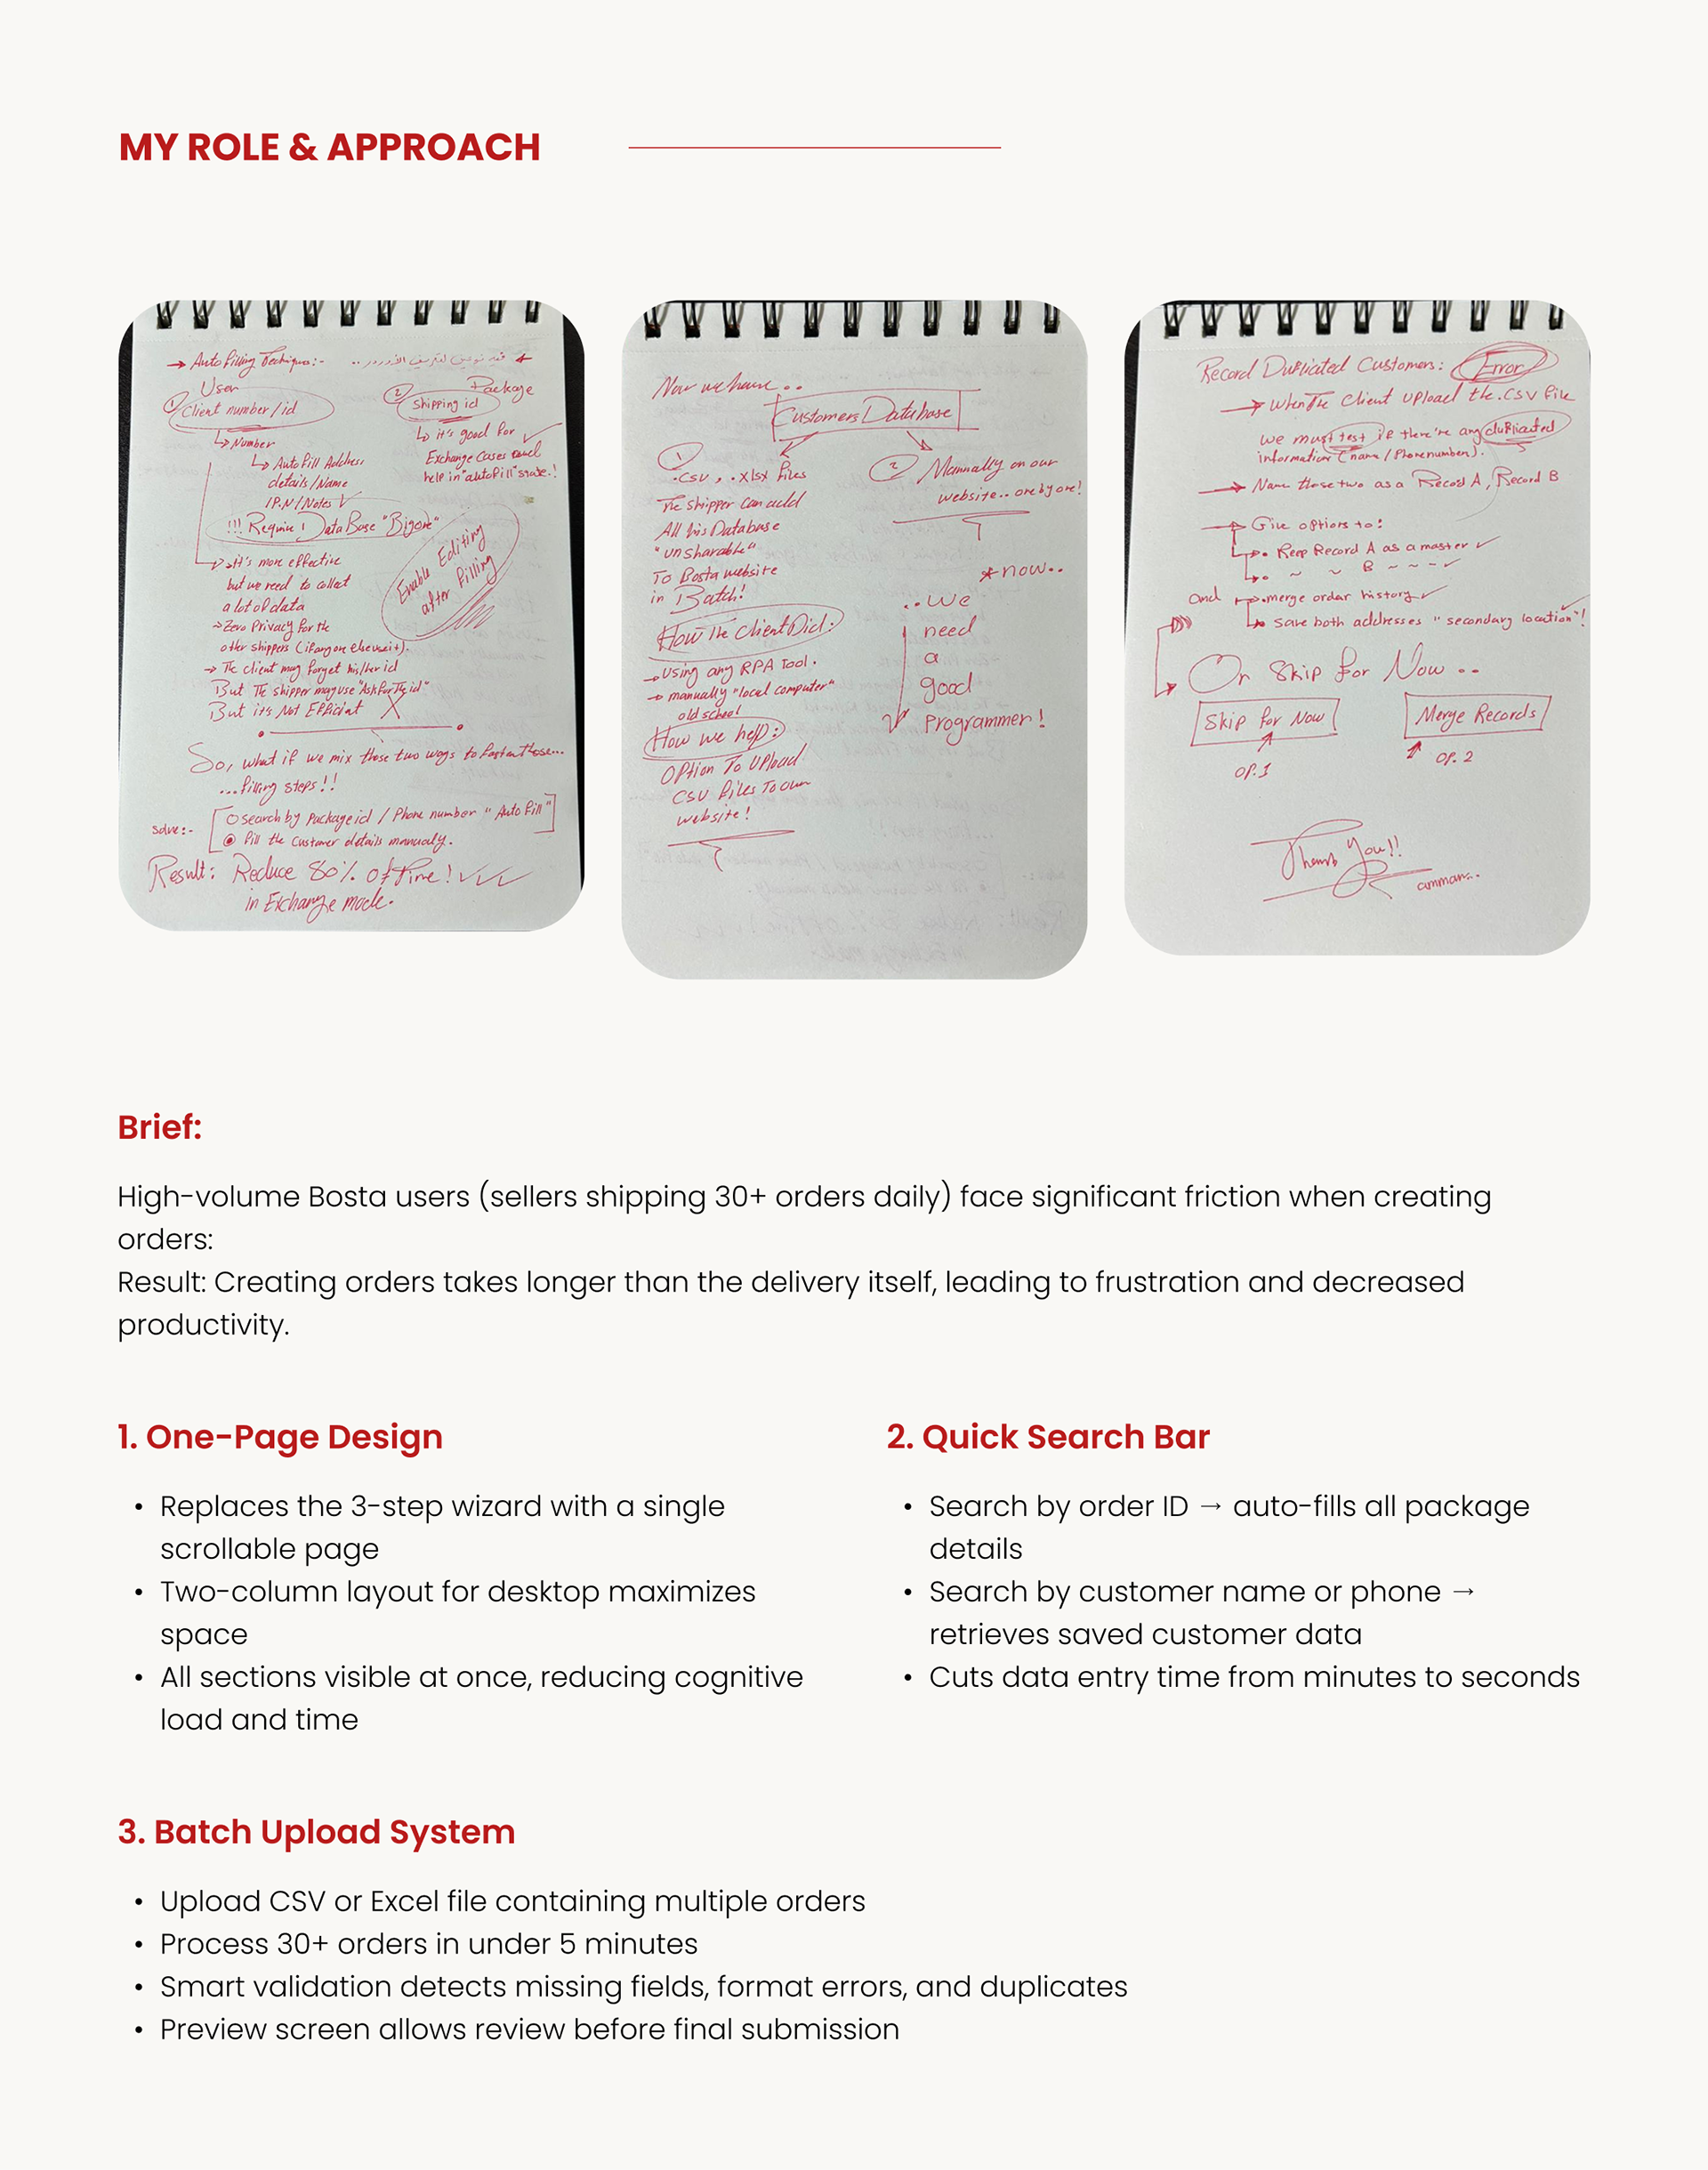 MY ROLE & APPROACH
→ Auto Filling Techique:-
User
① Client number/id
↳ Number
↳ Auto Fill Address,
details/Name
/P.N/Notes ✓
!!! Require 1 DataBase "Bigone"
② Package
Shipping id
↳ it's good for
Exchange Cases and
help in "autofill" state.!
Enable Editing
after Filling
→ it's more effective
but we need to collect
a lot of data
→ Zero Privacy for the
other shippers (if anyone else use it).
→ The client may forget his/her id
But The shipper may use "Ask for The id"
But it's Not Efficiant X
So, what if we mix those two ways to fasten those...
...filling steps!!
solve:-
○ search by Package id / Phone number "Auto Fill"
◉ fill the Customer details manually.
Result: Reduce 80% of Time! ✓✓✓
in Exchange mode.
Now we have..
Customers Database
①
.CSV, .Xlsx Files
The shipper Can add
All his Database
"unsharable"
To Bosta website
in Batch!
How The Client Did:
→ Using any RPA Tool.
→ manually "local computer"
old school
How we help:
OPtion To Upload
CSV files To our
website!
② Mannally on our
website.. one by one!
*now..
..We
need
a
good
Programmer!
Record Dupliated Customers: Error
→ When The Client Upload the .CSV File
we must test if there're any dupliated
information (name / Phone number).
→ Name those two as a Record A, Record B
→ Give options to:
↳• Keep Record A as a master ✓
↳• ~ ~ B ~ ~ ~ ✓
and
→• merge order history ✓
↳ save both addresses "secondary location"!
Or Skip for Now..
Skip for Now
Merge Records
OP.1
OP.2
Thank You!!
amman..
Brief:
High-volume Bosta users (sellers shipping 30+ orders daily) face significant friction when creating
orders:
Result: Creating orders takes longer than the delivery itself, leading to frustration and decreased
productivity.
1. One-Page Design
• Replaces the 3-step wizard with a single
scrollable page
• Two-column layout for desktop maximizes
space
• All sections visible at once, reducing cognitive
load and time
2. Quick Search Bar
• Search by order ID → auto-fills all package
details
• Search by customer name or phone →
retrieves saved customer data
• Cuts data entry time from minutes to seconds
3. Batch Upload System
• Upload CSV or Excel file containing multiple orders
• Process 30+ orders in under 5 minutes
• Smart validation detects missing fields, format errors, and duplicates
• Preview screen allows review before final submission